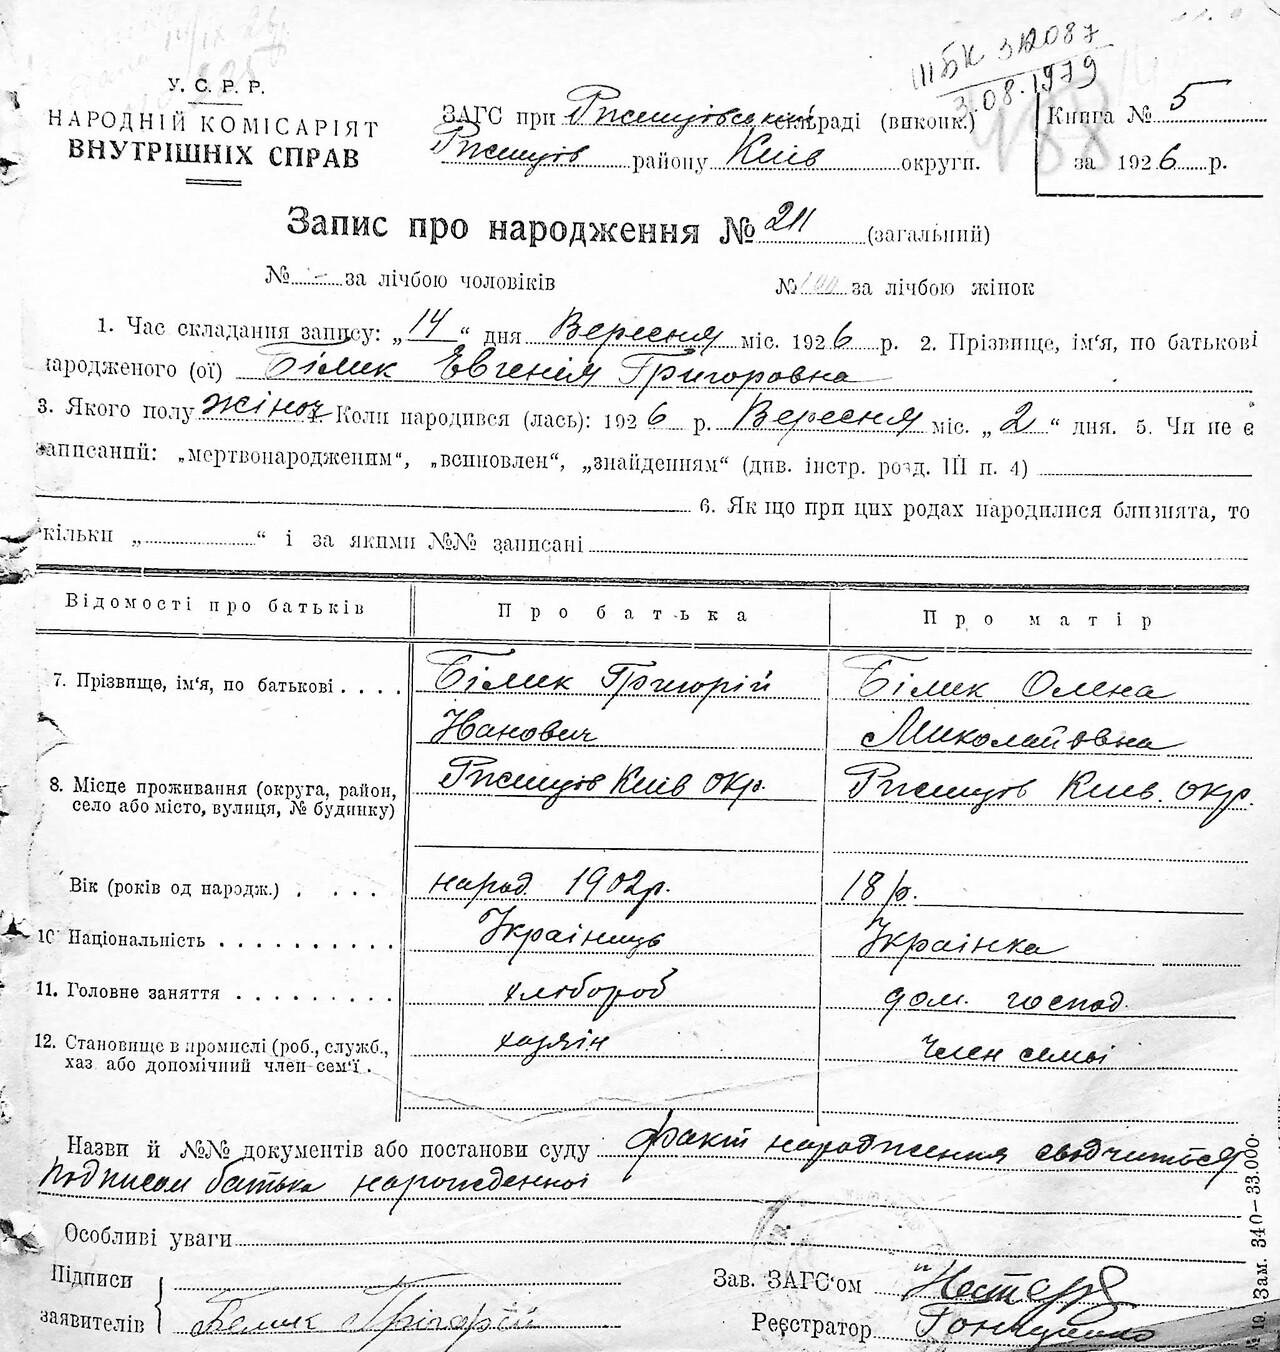 ІІІ БК 312087
3.08.1979
У. С. Р. Р.
НАРОДНІЙ КОМІСАРІЯТ
ВНУТРІШНІХ СПРАВ
ЗАГС при Ржищівський сільраді (виконк.)
Ржищів району Київ округи.
Книга № 5
за 1926 р.
188
Запис про народження № 211 (загальний)
№ - за лічбою чоловіків № 100 за лічбою жінок
1. Час складання запису: „14“ дня Вересня міс. 1926 р. 2. Прізвище, ім‘я, по батькові
народженого (ої) Білик Евгенія Григоровна
3. Якого полу жіноч Коли народився (лась): 1926 р. Вересня міс. „2“ дня. 5. Чи не є
записаний: „мертвонародженим“, „всиновлен“, „знайденням“ (див. інстр. розд. III п. 4)
6. Як що при цих родах народилися близнята, то
кільки „ “ і за якими №№ записані
Відомості про батьків Про батька Про матір
7. Прізвище, ім‘я, по батькові . . . . Білик Григорій Білик Олена
Иванович Миколайовна
8. Місце проживання (округа, район, село або місто, вулиця, № будинку) Ржищів Київ окр. Ржищів Київ. окр.
Вік (років од народж.) . . . . . народ. 1902р. 18 р.
10 Національність . . . . . . . . . . Украінець Украінка
11. Головне заняття . . . . . . . . . хлібороб дом. господ.
12. Становище в промислі (роб., служб., хаз або допомічний член-сем‘ї . хазяін Член семьі
Назви й №№ документів або постанови суду факт народження сводчиться
подписом батька нарожденноі
Особливі уваги
Підписи
заявителів Белик Грігорій
Зав. ЗАГС‘ом
Реєстратор
№ 19. Зам. 340—33.000.